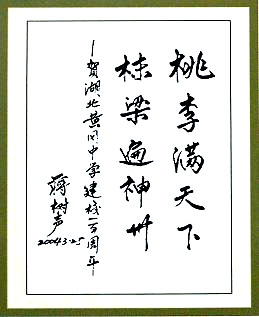 桃李满天下
栋梁遍神州
—贺湖北黄冈中学建校一百周年—
蒋树声
2004.3.25